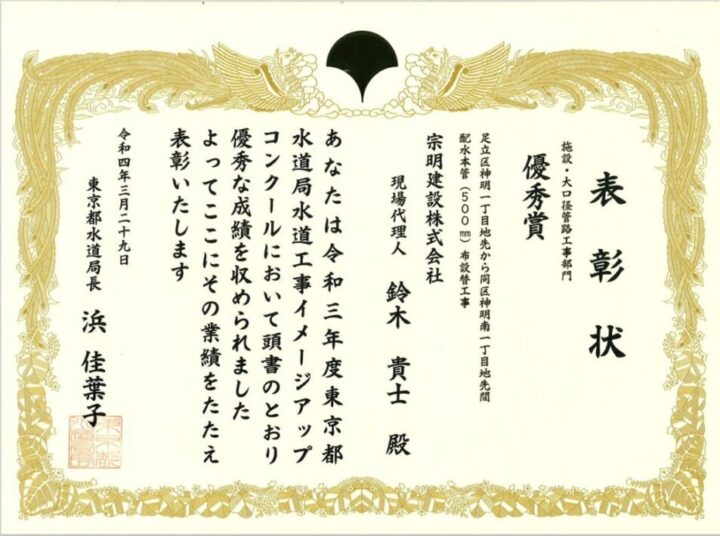 表彰状
施設・大口径管路工事部門
優秀賞
足立区神明一丁目地先から同区神明南一丁目地先間
配水本管(500㎜)布設替工事
宗明建設株式会社
現場代理人 鈴木 貴士 殿
あなたは令和三年度東京都
水道局水道工事イメージアップ
コンクールにおいて頭書のとおり
優秀な成績を収められました
よってここにその業績をたたえ
表彰いたします
令和四年三月二十九日
東京都水道局長 浜 佳葉子